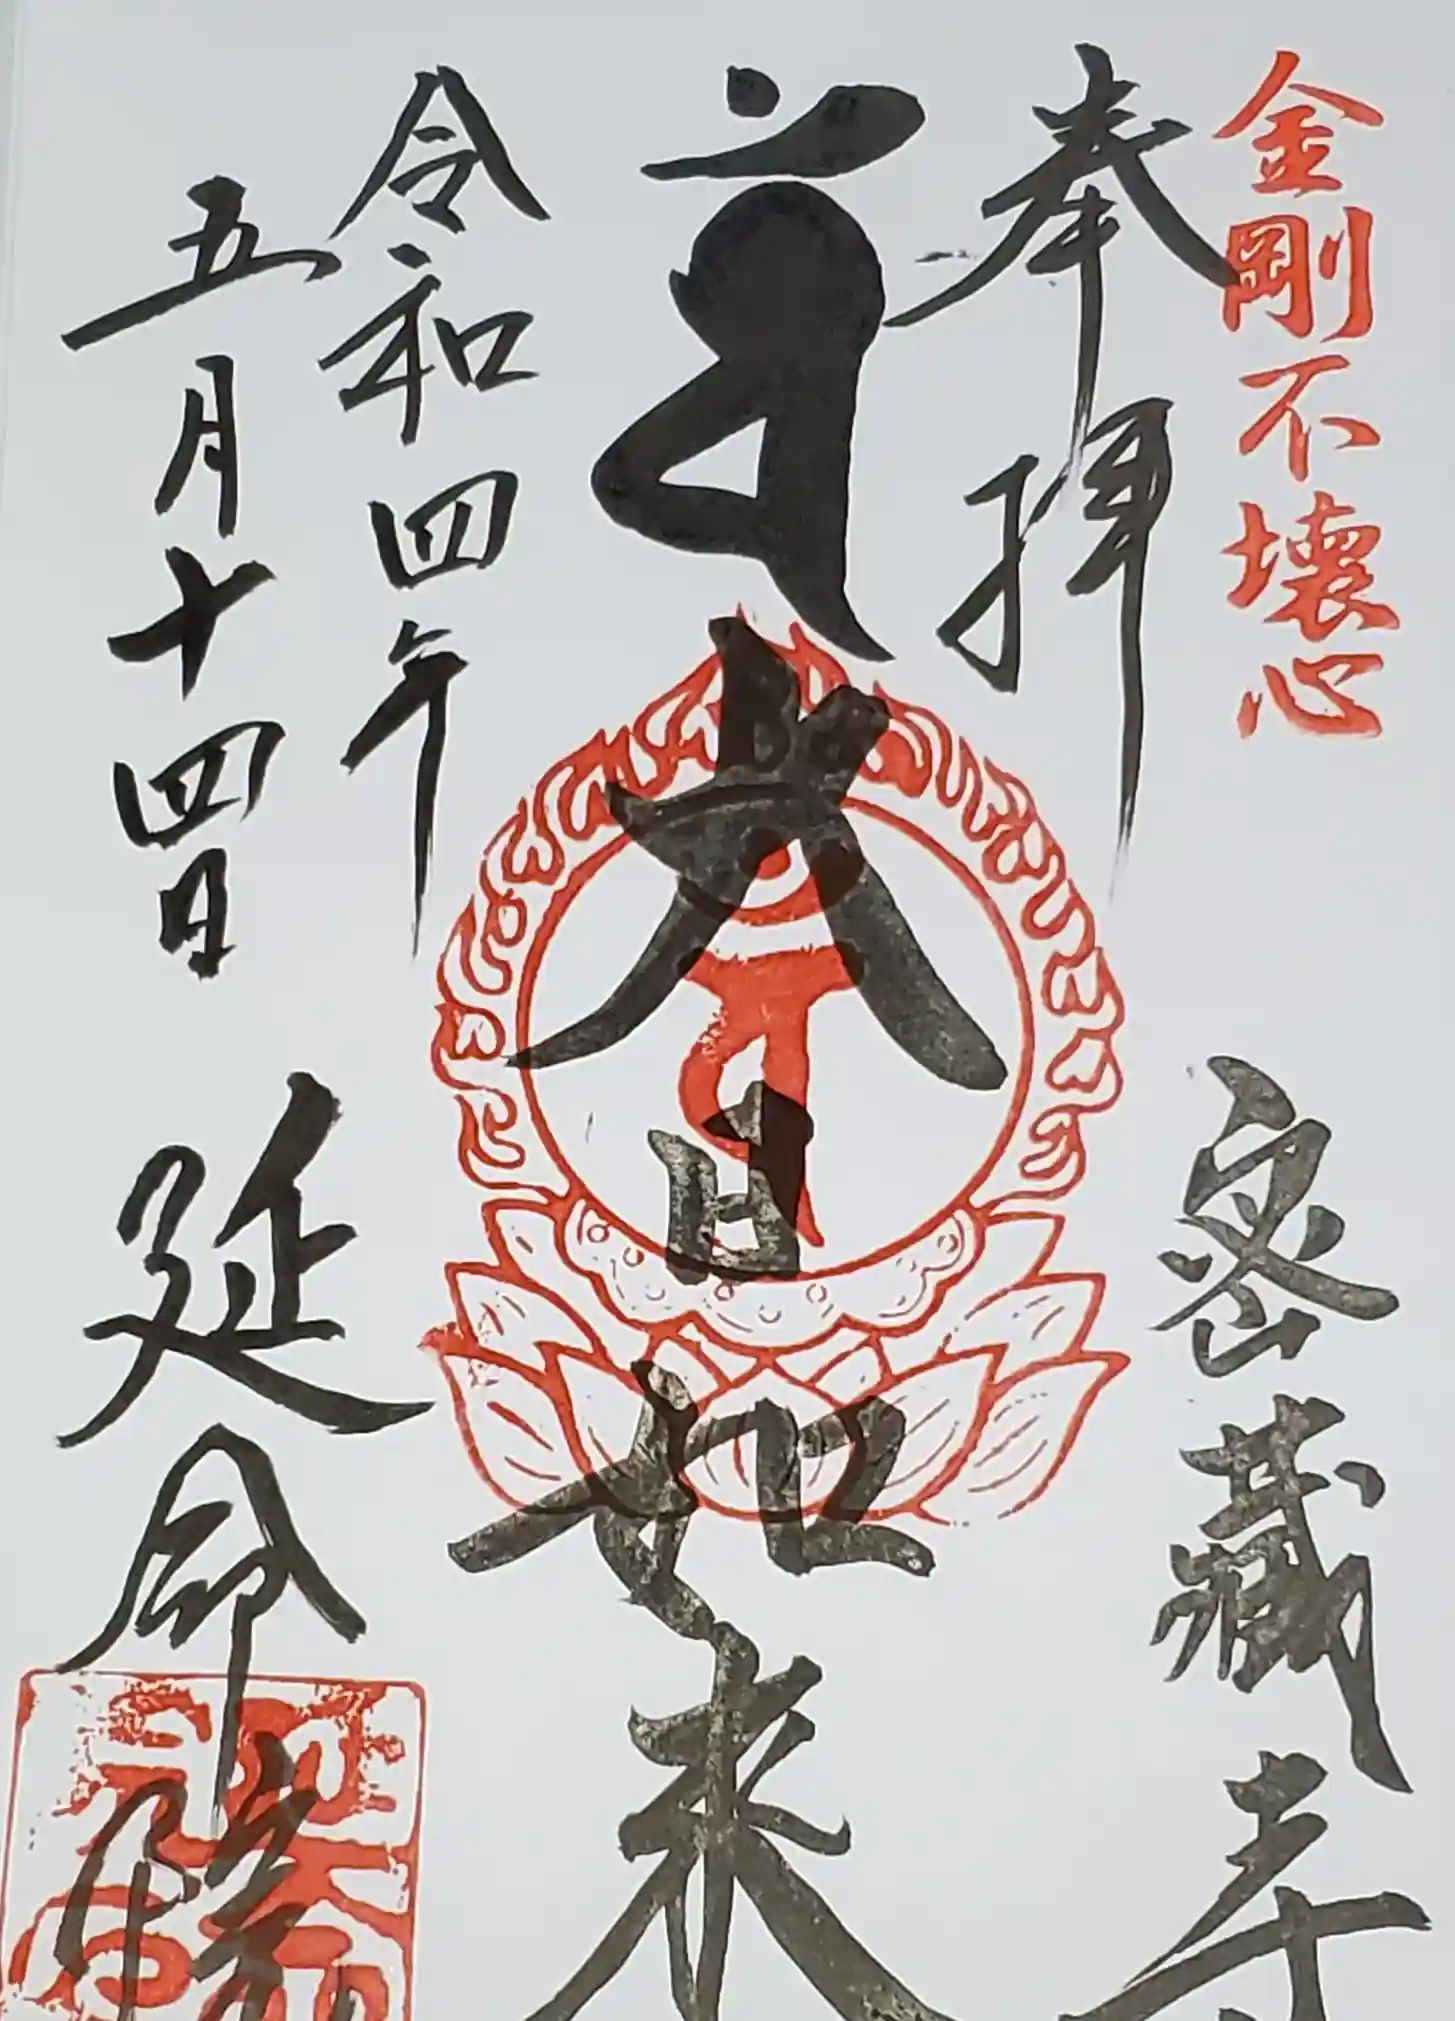 金剛不壊心
奉拝
密蔵寺
大日如来
令和四年
五月十四日
延命院